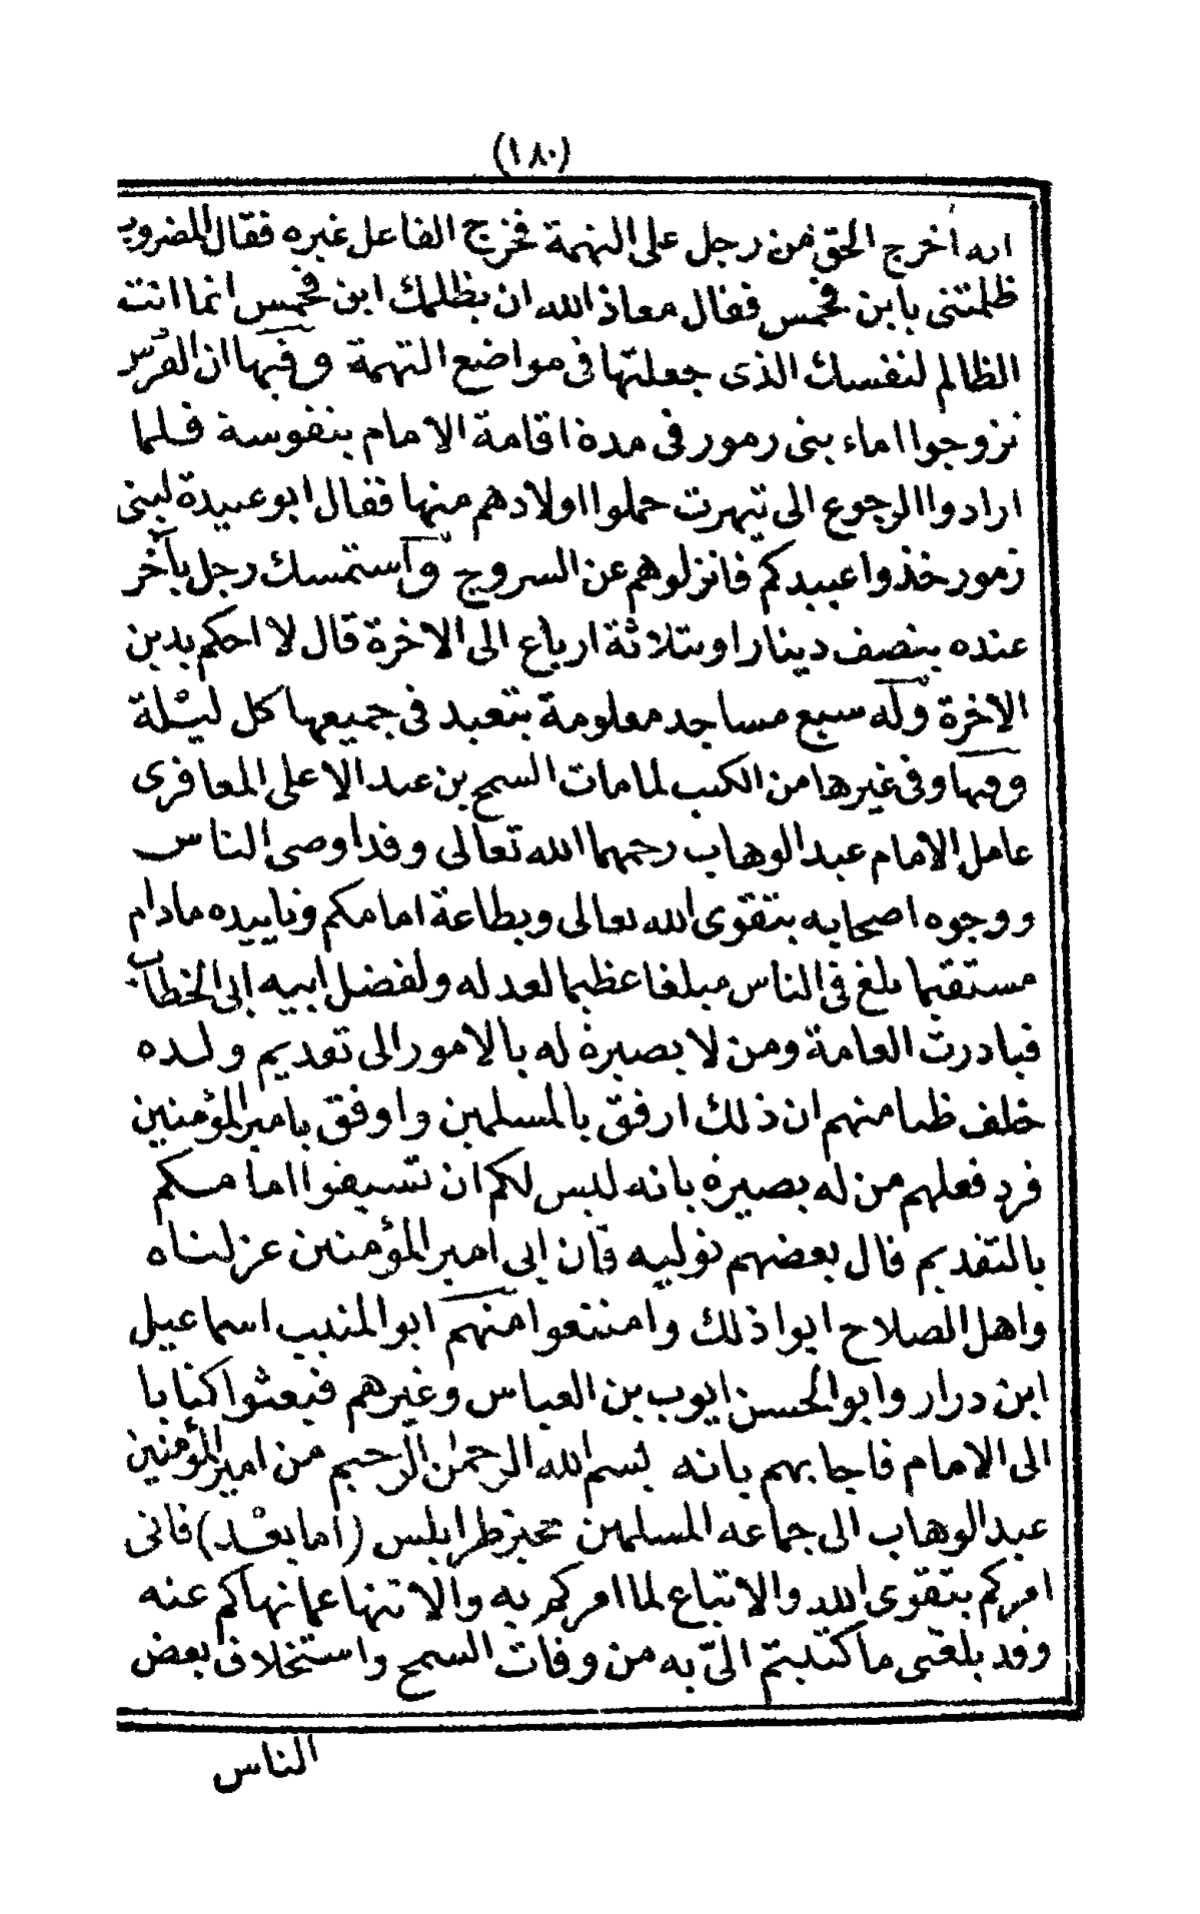 (١٨٠)
انه أخرج الحق من رجل على التهمة فخرج الفاعل غيره فقال المضروب
ظلمتنى يا ابن فحمس فقال معاذ الله ان يظلمك ابن فحمس انما انت
الظالم لنفسك الذى جعلتها فى مواضع التهمة وفيها ان الفرس
تزوجوا اماء بنى زمور فى مدة اقامة الامام بنفوسة فلما
ارادوا الرجوع الى تيهرت حملوا اولادهم منها فقال ابو عبيدة لبنى
زمور خذوا عبيدكم فانزلوهم عن السروج واستمسك رجل بآخر
عنده بنصف دينار او بثلاثة ارباع الى الاخرة قال لا احكم بدين
الاخرة وله سبع مساجد معلومة يتعبد فى جميعها كل ليلة
وفيها وفى غيرها من الكتب لما مات السمح بن عبد الاعلى المعافرى
عامل الامام عبد الوهاب رحمهما الله تعالى وقد اوصى الناس
ووجوه اصحابه بتقوى الله تعالى وبطاعة امامكم وتاييده مادام
مستقيما بلغ فى الناس مبلغا عظيما لعدله ولفضل ابيه ابى الخطاب
فبادرت العامة ومن لا بصيرة له بالامور الى تقديم ولده
خلف ظنا منهم ان ذلك ارفق بالمسلمين واوفق بامير المؤمنين
فرد فعلهم من له بصيرة بانه ليس لكم ان تسبقوا امامكم
بالتقديم قال بعضهم نوليه فان ابى امير المؤمنين عزلناه
واهل الصلاح ابوا ذلك وامتنعوا منهم ابو المنيب اسماعيل
ابن درار وابو الحسن ايوب بن العباس وغيرهم فبعثوا كتابا
الى الامام فاجابهم بانه بسم الله الرحمن الرحيم من امير المؤمنين
عبد الوهاب الى جماعه المسلمين بحيز طرابلس (اما بعد) فانى
امركم بتقوى الله والاتباع لما امركم به والانتها عما نهاكم عنه
وقد بلغنى ما كتبتم الىّ به من وفات السمح واستخلاف بعض
الناس